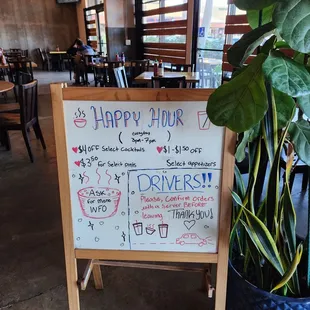 HAPPY HOUR
( everyday
3pm - 7pm )
$4 OFF Select Cocktails
$3.50 For Select beers
$1 - $1.50 OFF
Select appetizers
Ask
for more
INFO
DRIVERS!!
Please, Confirm Orders
with a Server Before
leaving
THANK YOU!